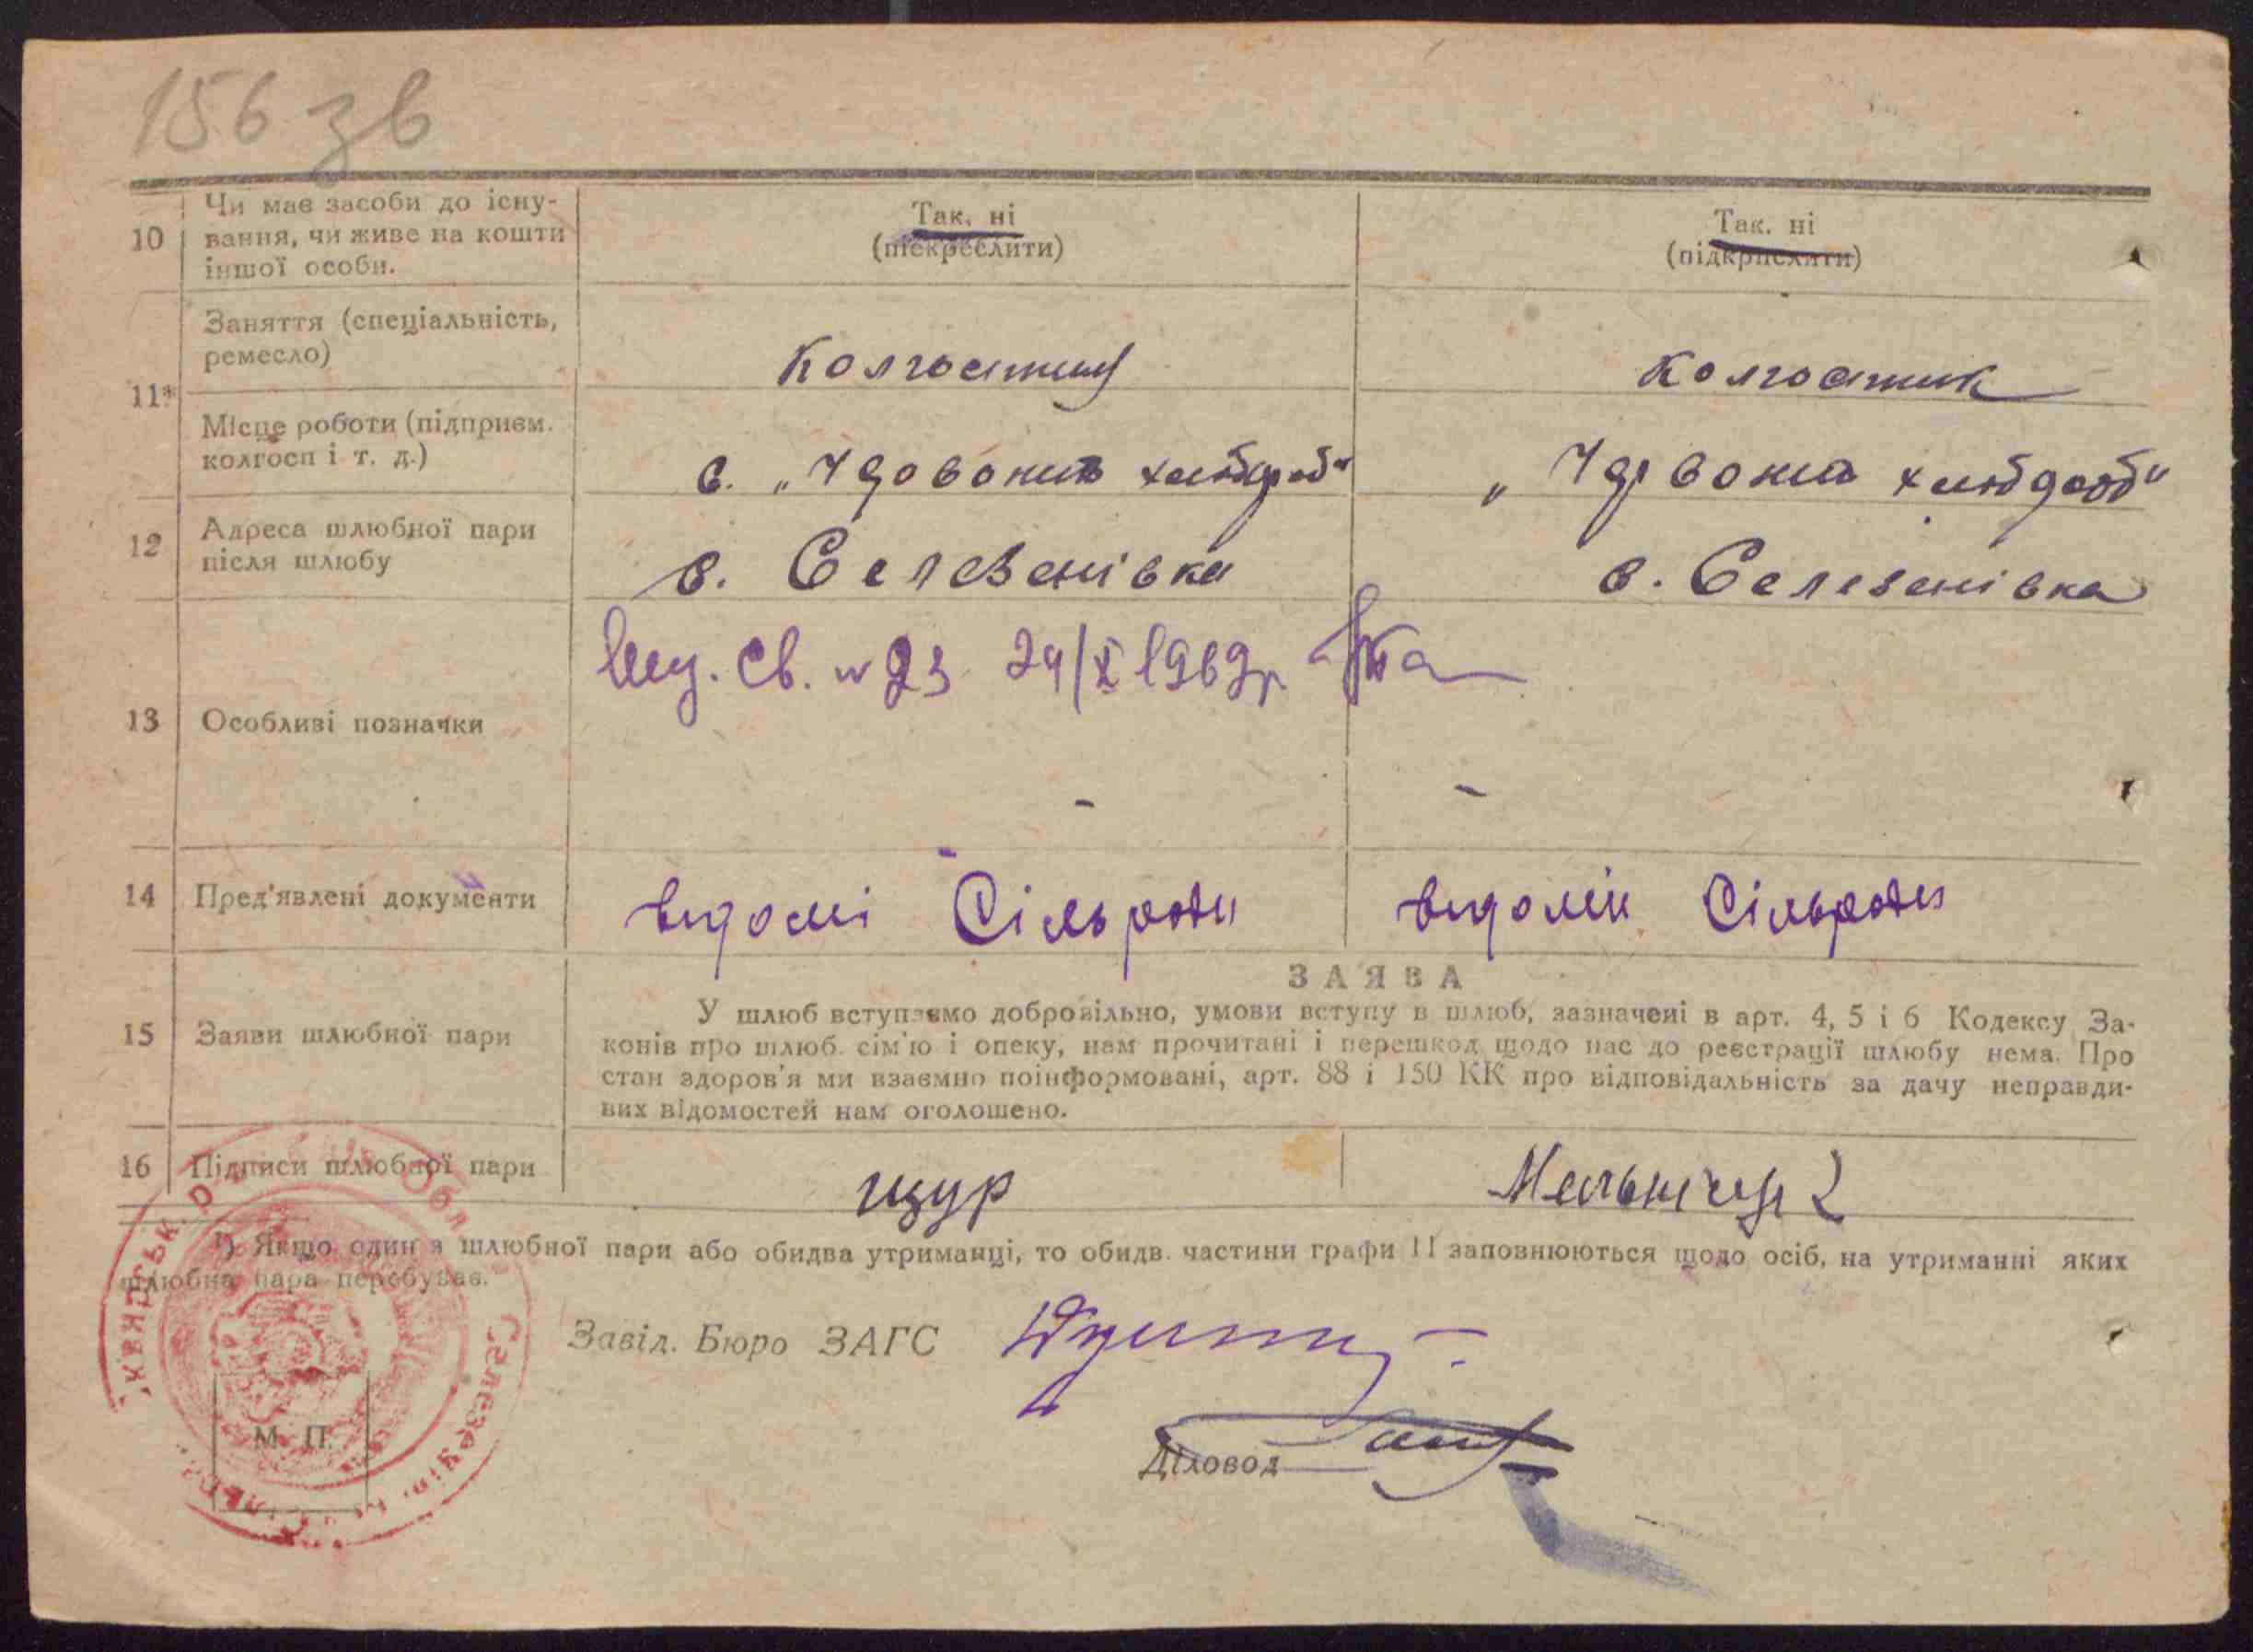 156 зв
10 Чи має засоби до існу-
вання, чи живе на кошти
іншої особи.
Так, ні
(підкреслити)
Так. ні
(підкрислити)
Заняття (спеціальність,
ремесло)
Колгоспник
Колгоспник
11*
Місце роботи (підприєм.
колгосп і т. д.)
с. „Червоний хлібороб"
„Червоний хлібороб"
12 Адреса шлюбної пари
після шлюбу
с. Селезенівка
с. Селезенівка
13 Особливі позначки
св. № 23 29/X 1969р.
-
-
14 Пред'явлені документи
відомі Сільради
Сільради
ЗАЯВА
15 Заяви шлюбної пари
У шлюб вступаємо добровільно, умови вступу в шлюб, зазначені в арт. 4, 5 і 6 Кодексу За-
конів про шлюб. сім'ю і опеку, нам прочитані і перешкод щодо нас до реєстрації шлюбу нема. Про
стан здоров'я ми взаємно поінформовані, арт. 88 і 150 КК про відповідальність за дачу неправди-
вих відомостей нам оголошено.
16 Підписи шлюбної пари
щур
¹) Якщо один з шлюбної пари або обидва утриманці, то обидв. частини графи 11 заповнюються щодо осіб, на утриманні яких
шлюбна пара перебуває.
Завід. Бюро ЗАГС
М. П.
Діловод